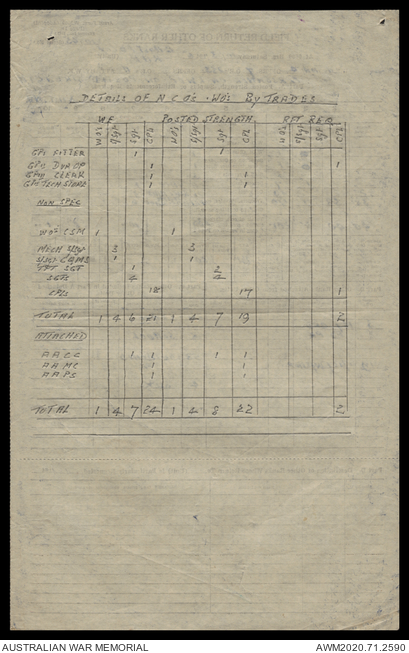 DETAILS OF N C O'S & WO'S BY TRADES
WE POSTED STRENGTH RFT REQ
WO's S/Sgt Sgt CPL WO's S/Sgt Sgt CPL WO's S/Sgt Sgt CPL
GP1 FITTER 1 1
1 1
CLERK 1 1
TECH STORE 1 1
NON SPEC
WO2 CSM 1 1
MECH 3 3
CQMS 1 1
TPT SGT 1 2
SGTS 4 4
CPLS 18 17 1
TOTAL 1 4 6 21 1 4 7 19 2
ATTACHED
A A C C 1 1 1 1
A A M C 1 1
A A P S 1 1
TOTAL 1 4 7 24 1 4 8 22 2
AUSTRALIAN WAR MEMORIAL AWM2020.71.2590